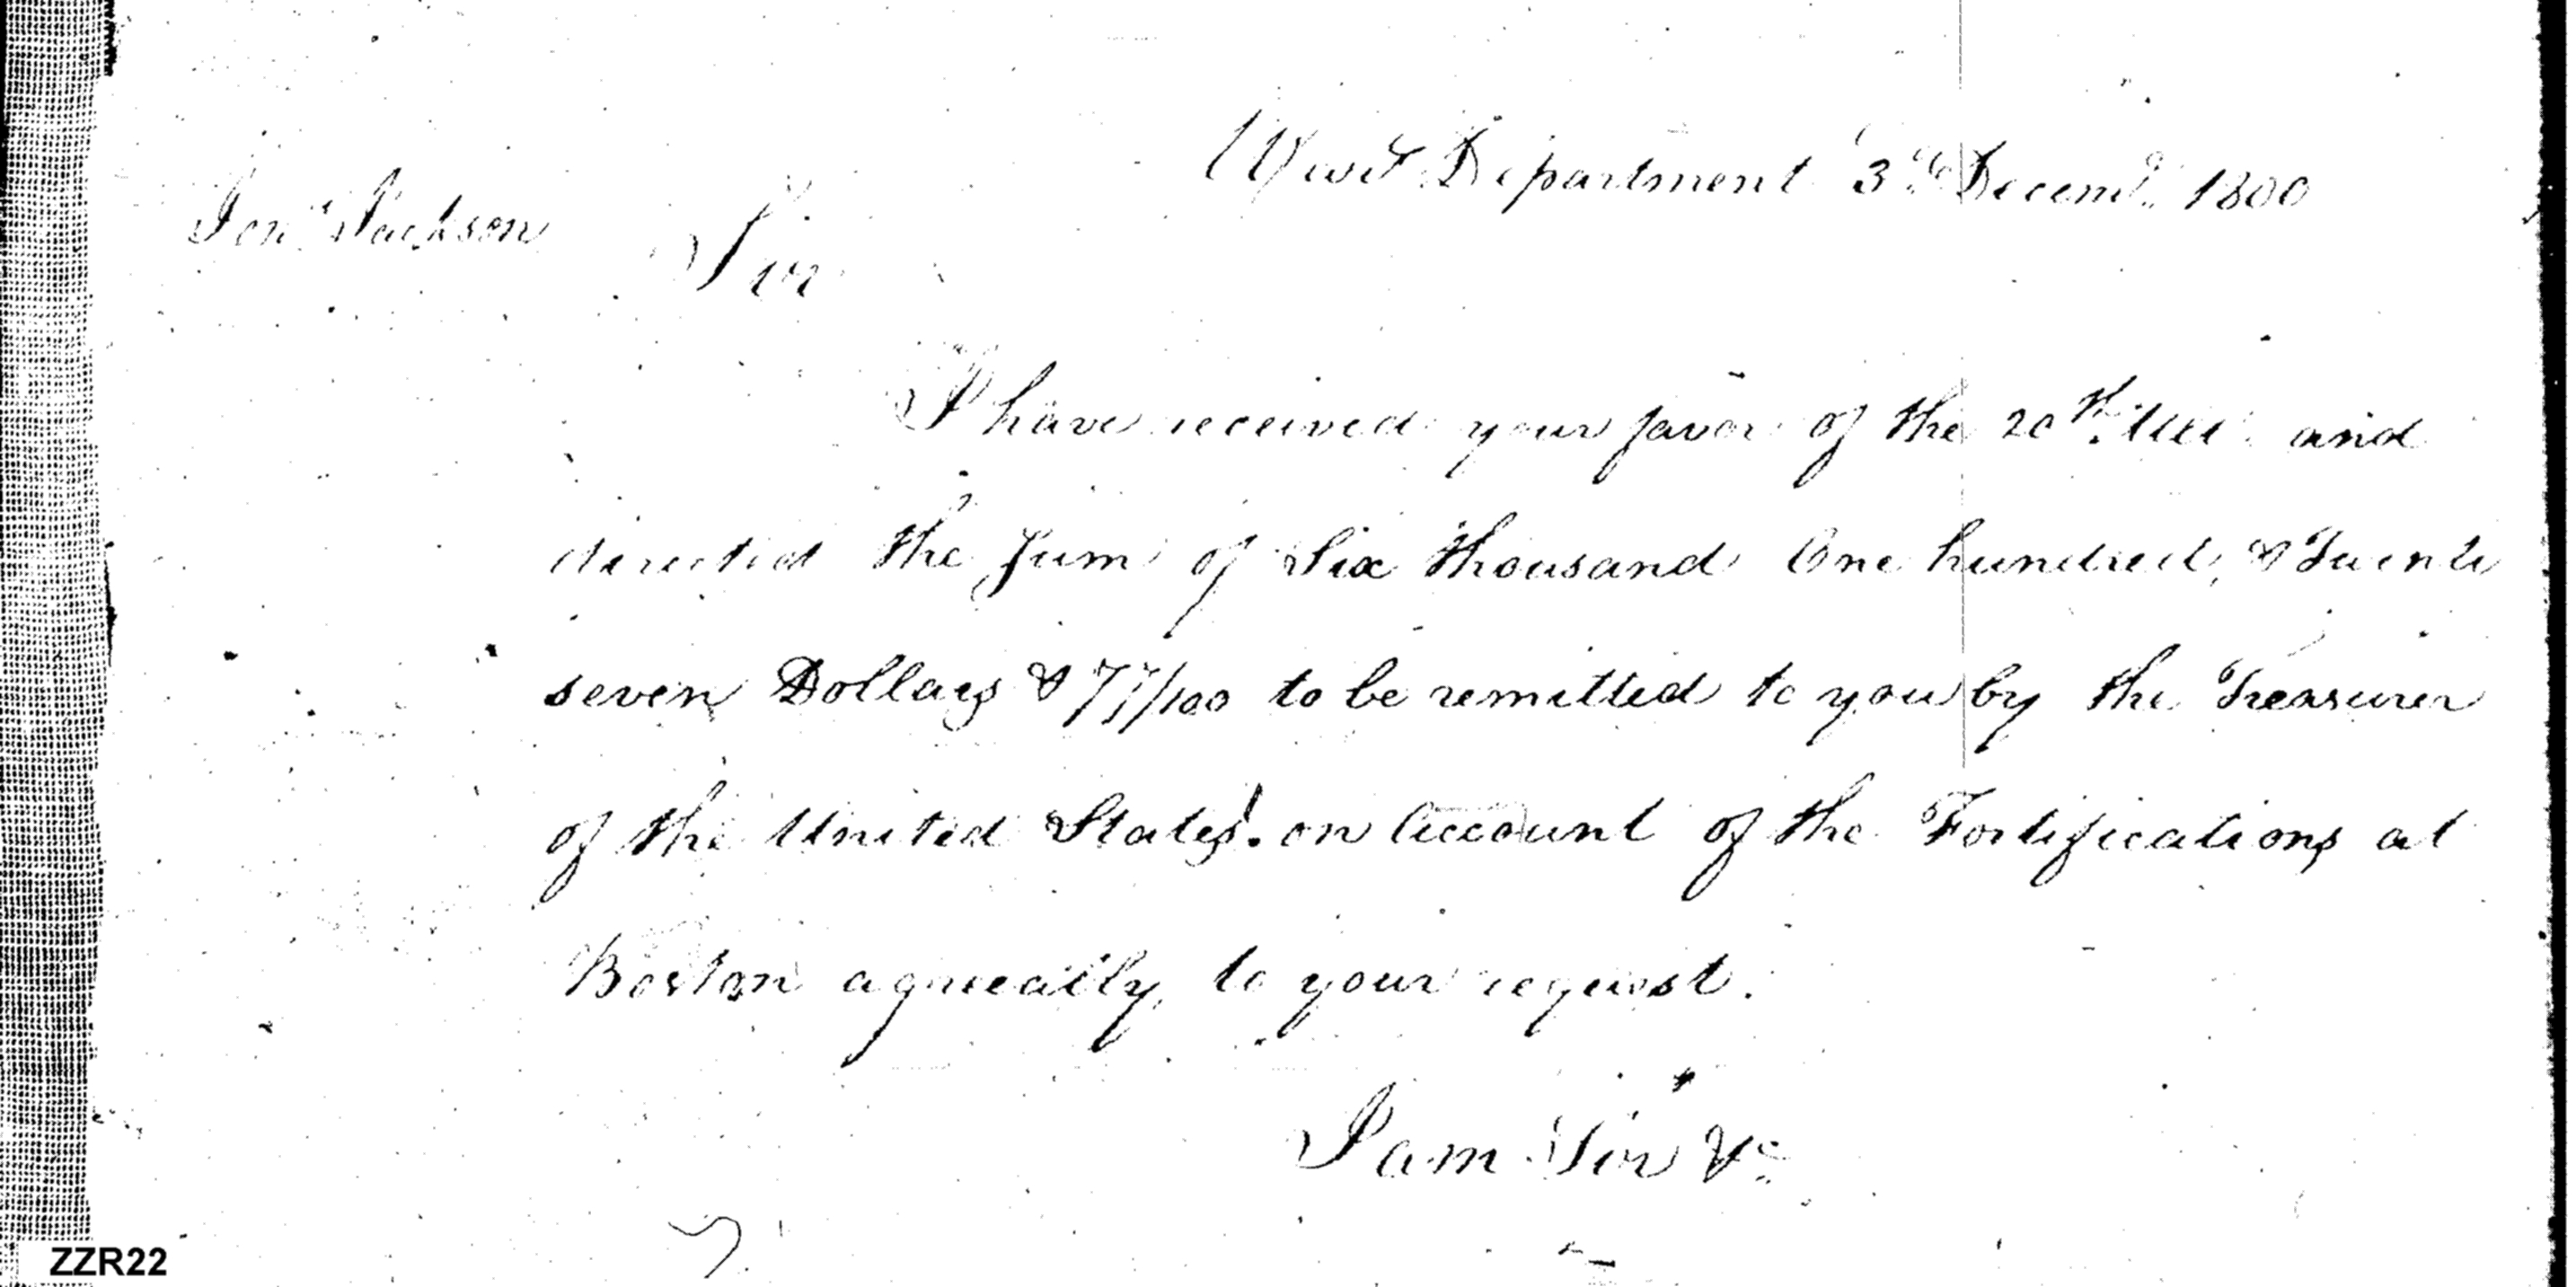 War Department 3d. Decemr. 1800
Jona. Jackson
Sir
I have received your favor of the 20th. Ult. and
directed the Sum of Six thousand One hundred, & Twenty
seven Dollars & 77/100 to be remitted to you by the Treasurer
of the United States. on Account of the Fortifications at
Boston agreeably to your request.
I am Sir &c.
ZZR22